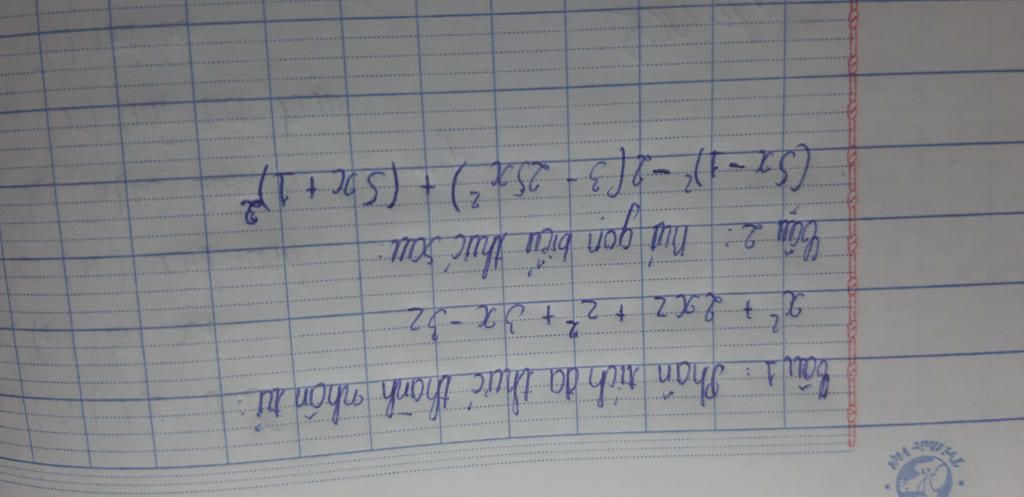 Câu 1: Phân tích đa thức thành nhân tử:
x² + 2xz + z² + 3x - 3z
Câu 2: Rút gọn biểu thức sau:
(5x - 1)² - 2(3 - 25x²) + (5x + 1)²